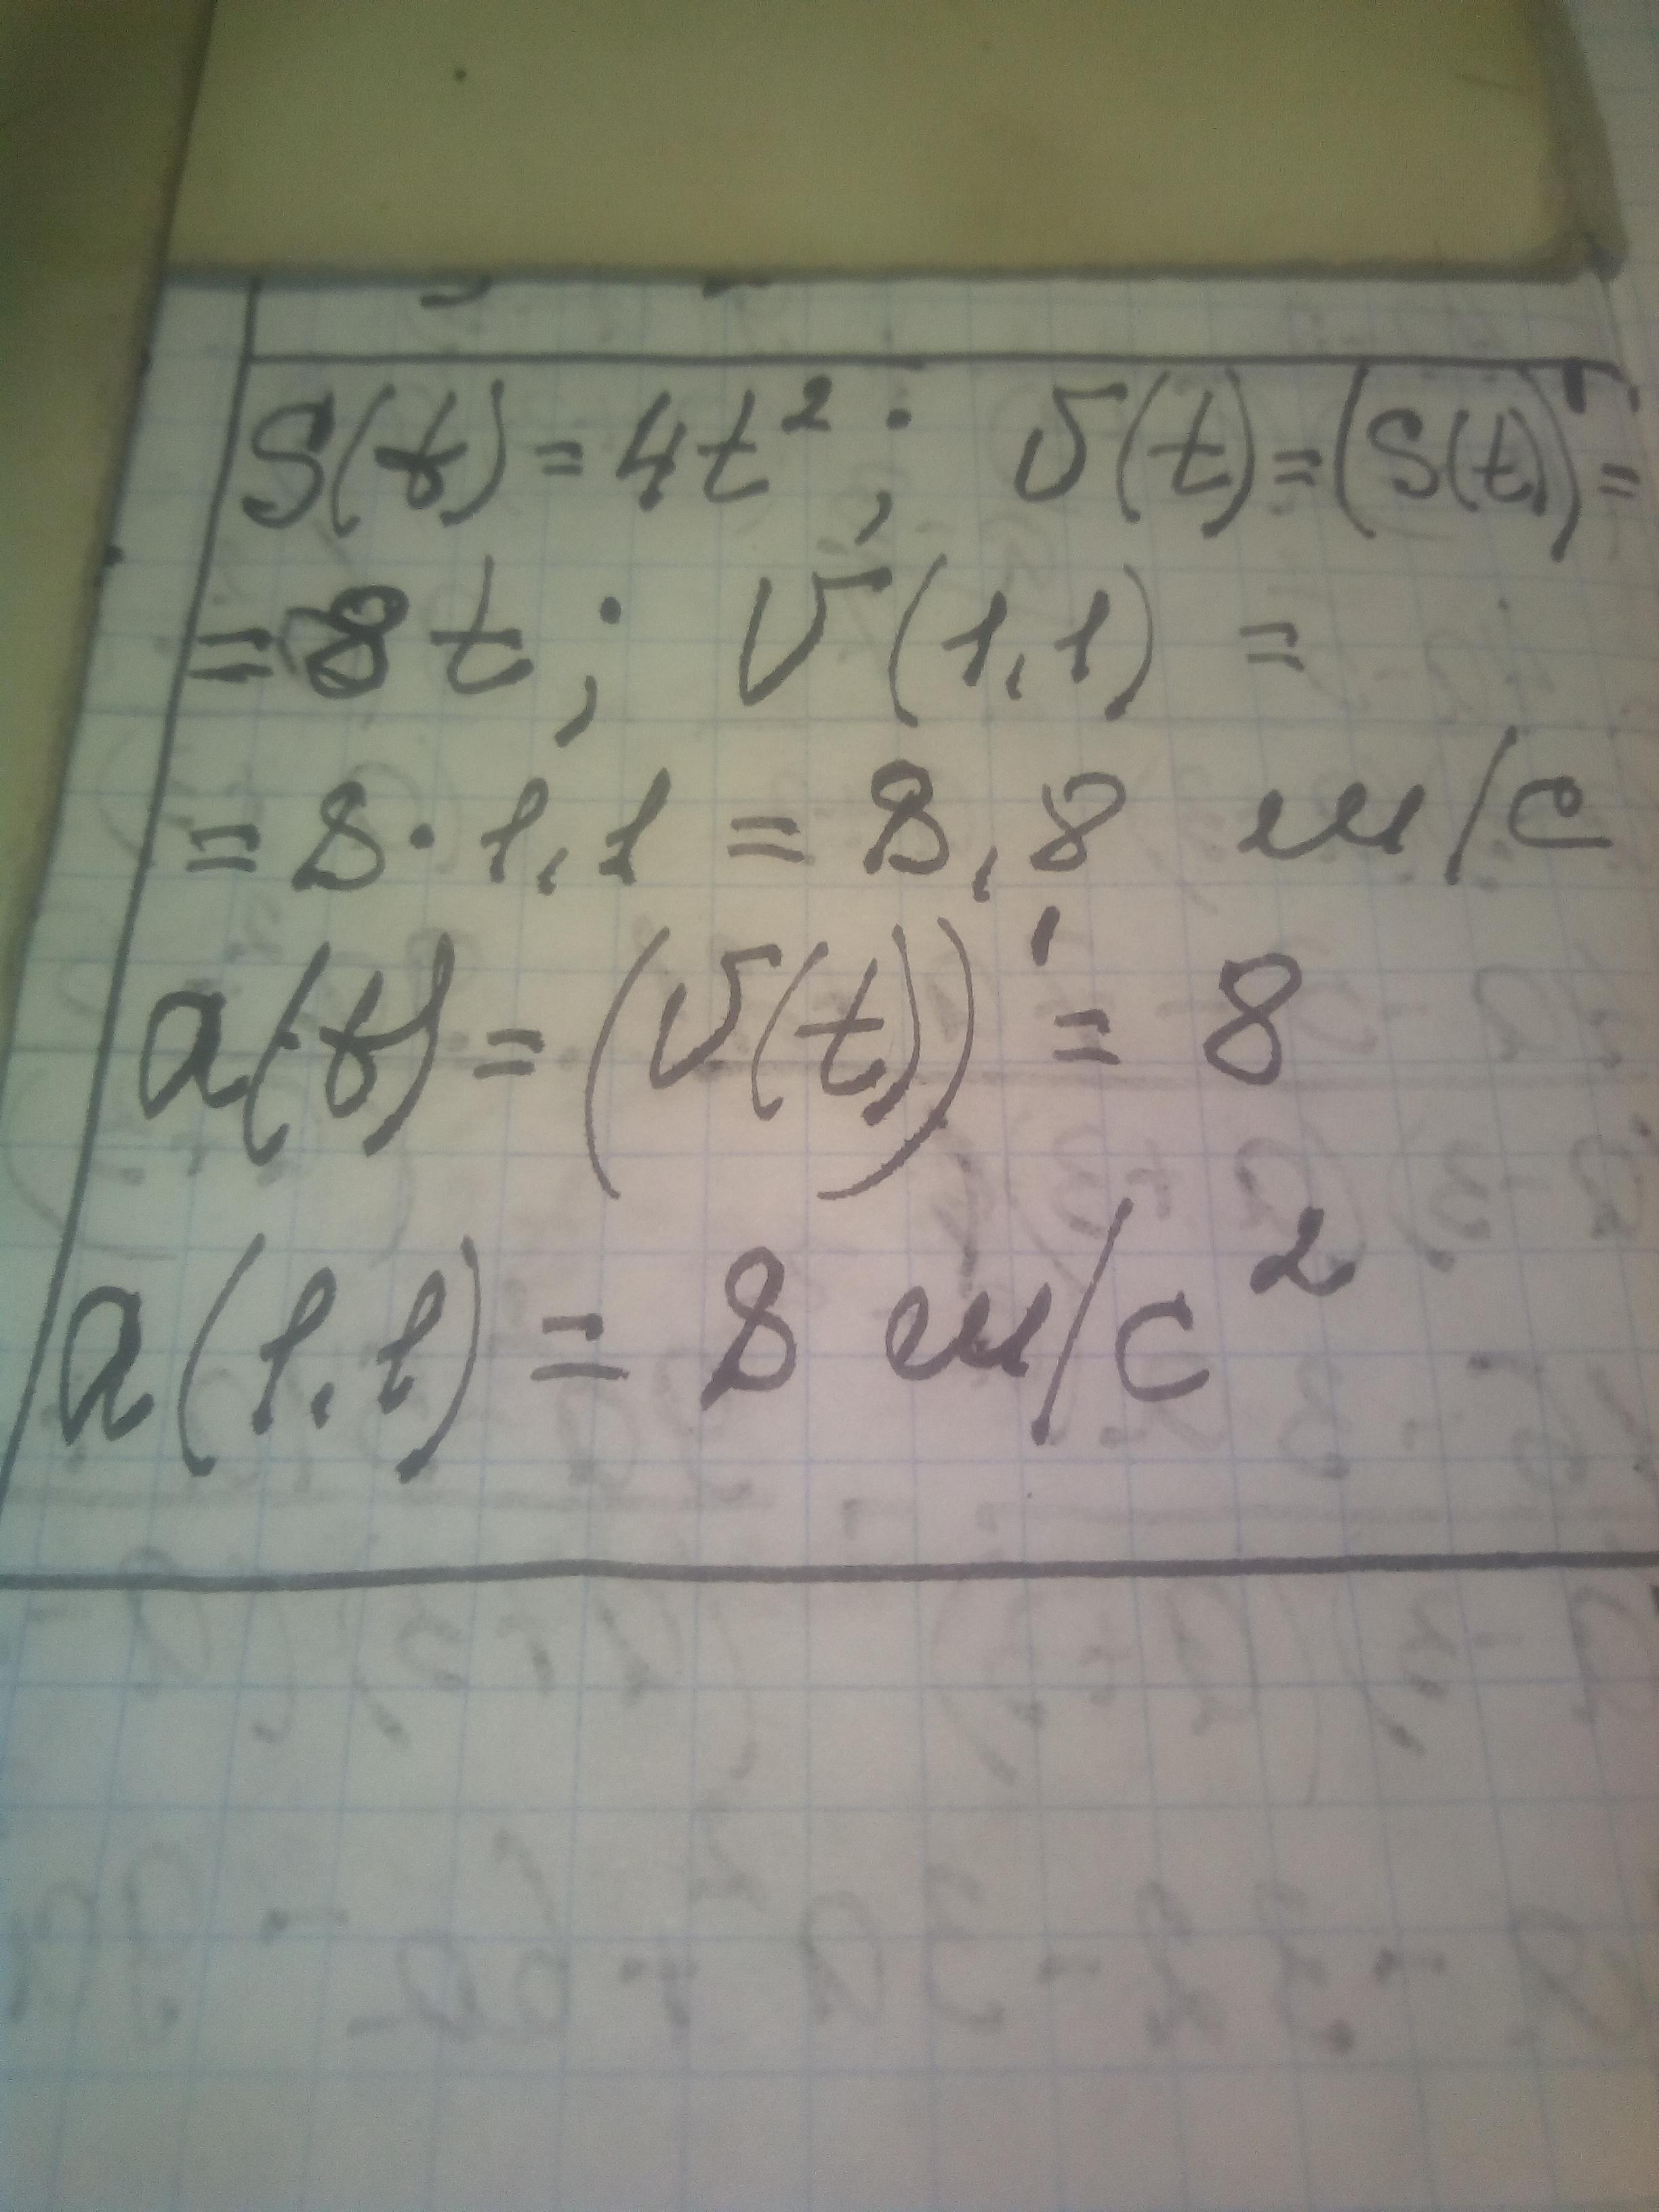 S(t) = 4t²; v(t) = (S(t))' =
= 8t; v(1,1) =
= 8·1,1 = 8,8 м/с
a(t) = (v(t))' = 8
a(1,1) = 8 м/с²